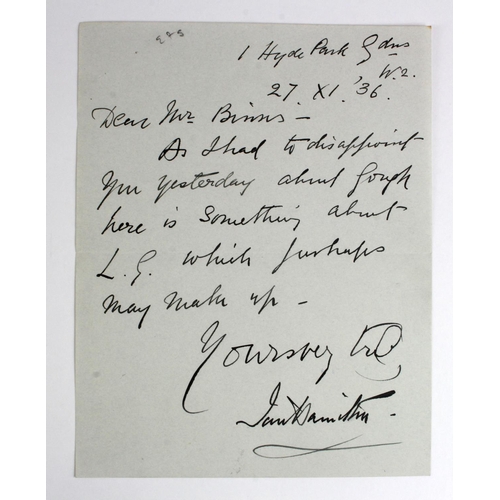 1 Hyde Park Gdns
W.2.
27. XI. '36.
Dear Mr Binns –
As I had to disappoint
you yesterday about Gough
here is something about
L.G. which perhaps
may make up –
Yours very
Ian Hamilton –